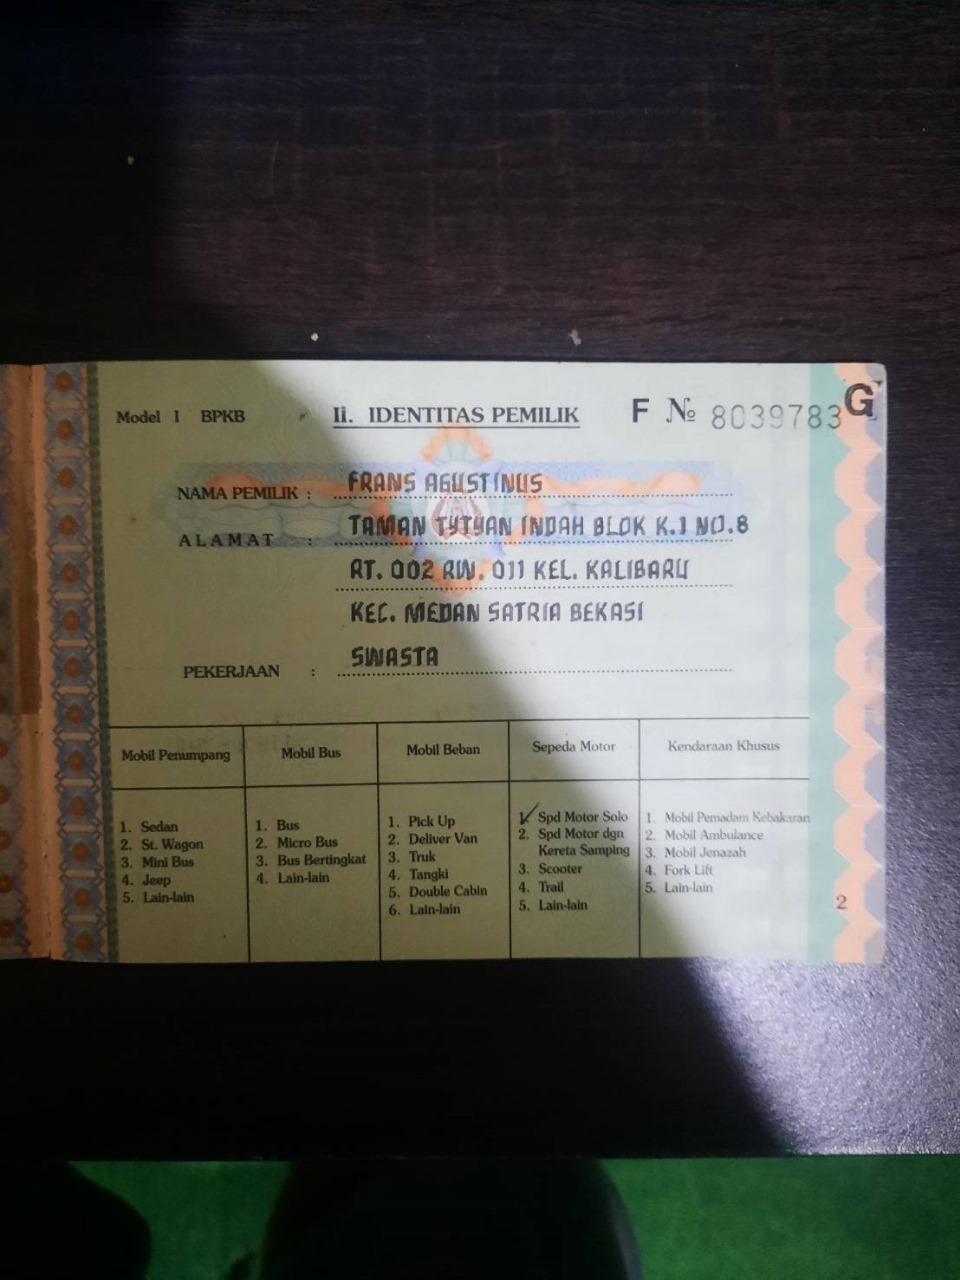 Model I BPKB II. IDENTITAS PEMILIK F № 8039783 G
NAMA PEMILIK : FRANS AGUSTINUS
ALAMAT : TAMAN TYTYAN INDAH BLOK K.1 NO.8
RT. 002 RW. 011 KEL. KALIBARU
KEC. MEDAN SATRIA BEKASI
PEKERJAAN : SWASTA
Mobil Penumpang
1. Sedan
2. St. Wagon
3. Mini Bus
4. Jeep
5. Lain-lain
Mobil Bus
1. Bus
2. Micro Bus
3. Bus Bertingkat
4. Lain-lain
Mobil Beban
1. Pick Up
2. Deliver Van
3. Truk
4. Tangki
5. Double Cabin
6. Lain-lain
Sepeda Motor
1. Spd Motor Solo
2. Spd Motor dgn
Kereta Samping
3. Scooter
4. Trail
5. Lain-lain
Kendaraan Khusus
1. Mobil Pemadam Kebakaran
2. Mobil Ambulance
3. Mobil Jenazah
4. Fork Lift
5. Lain-lain
2